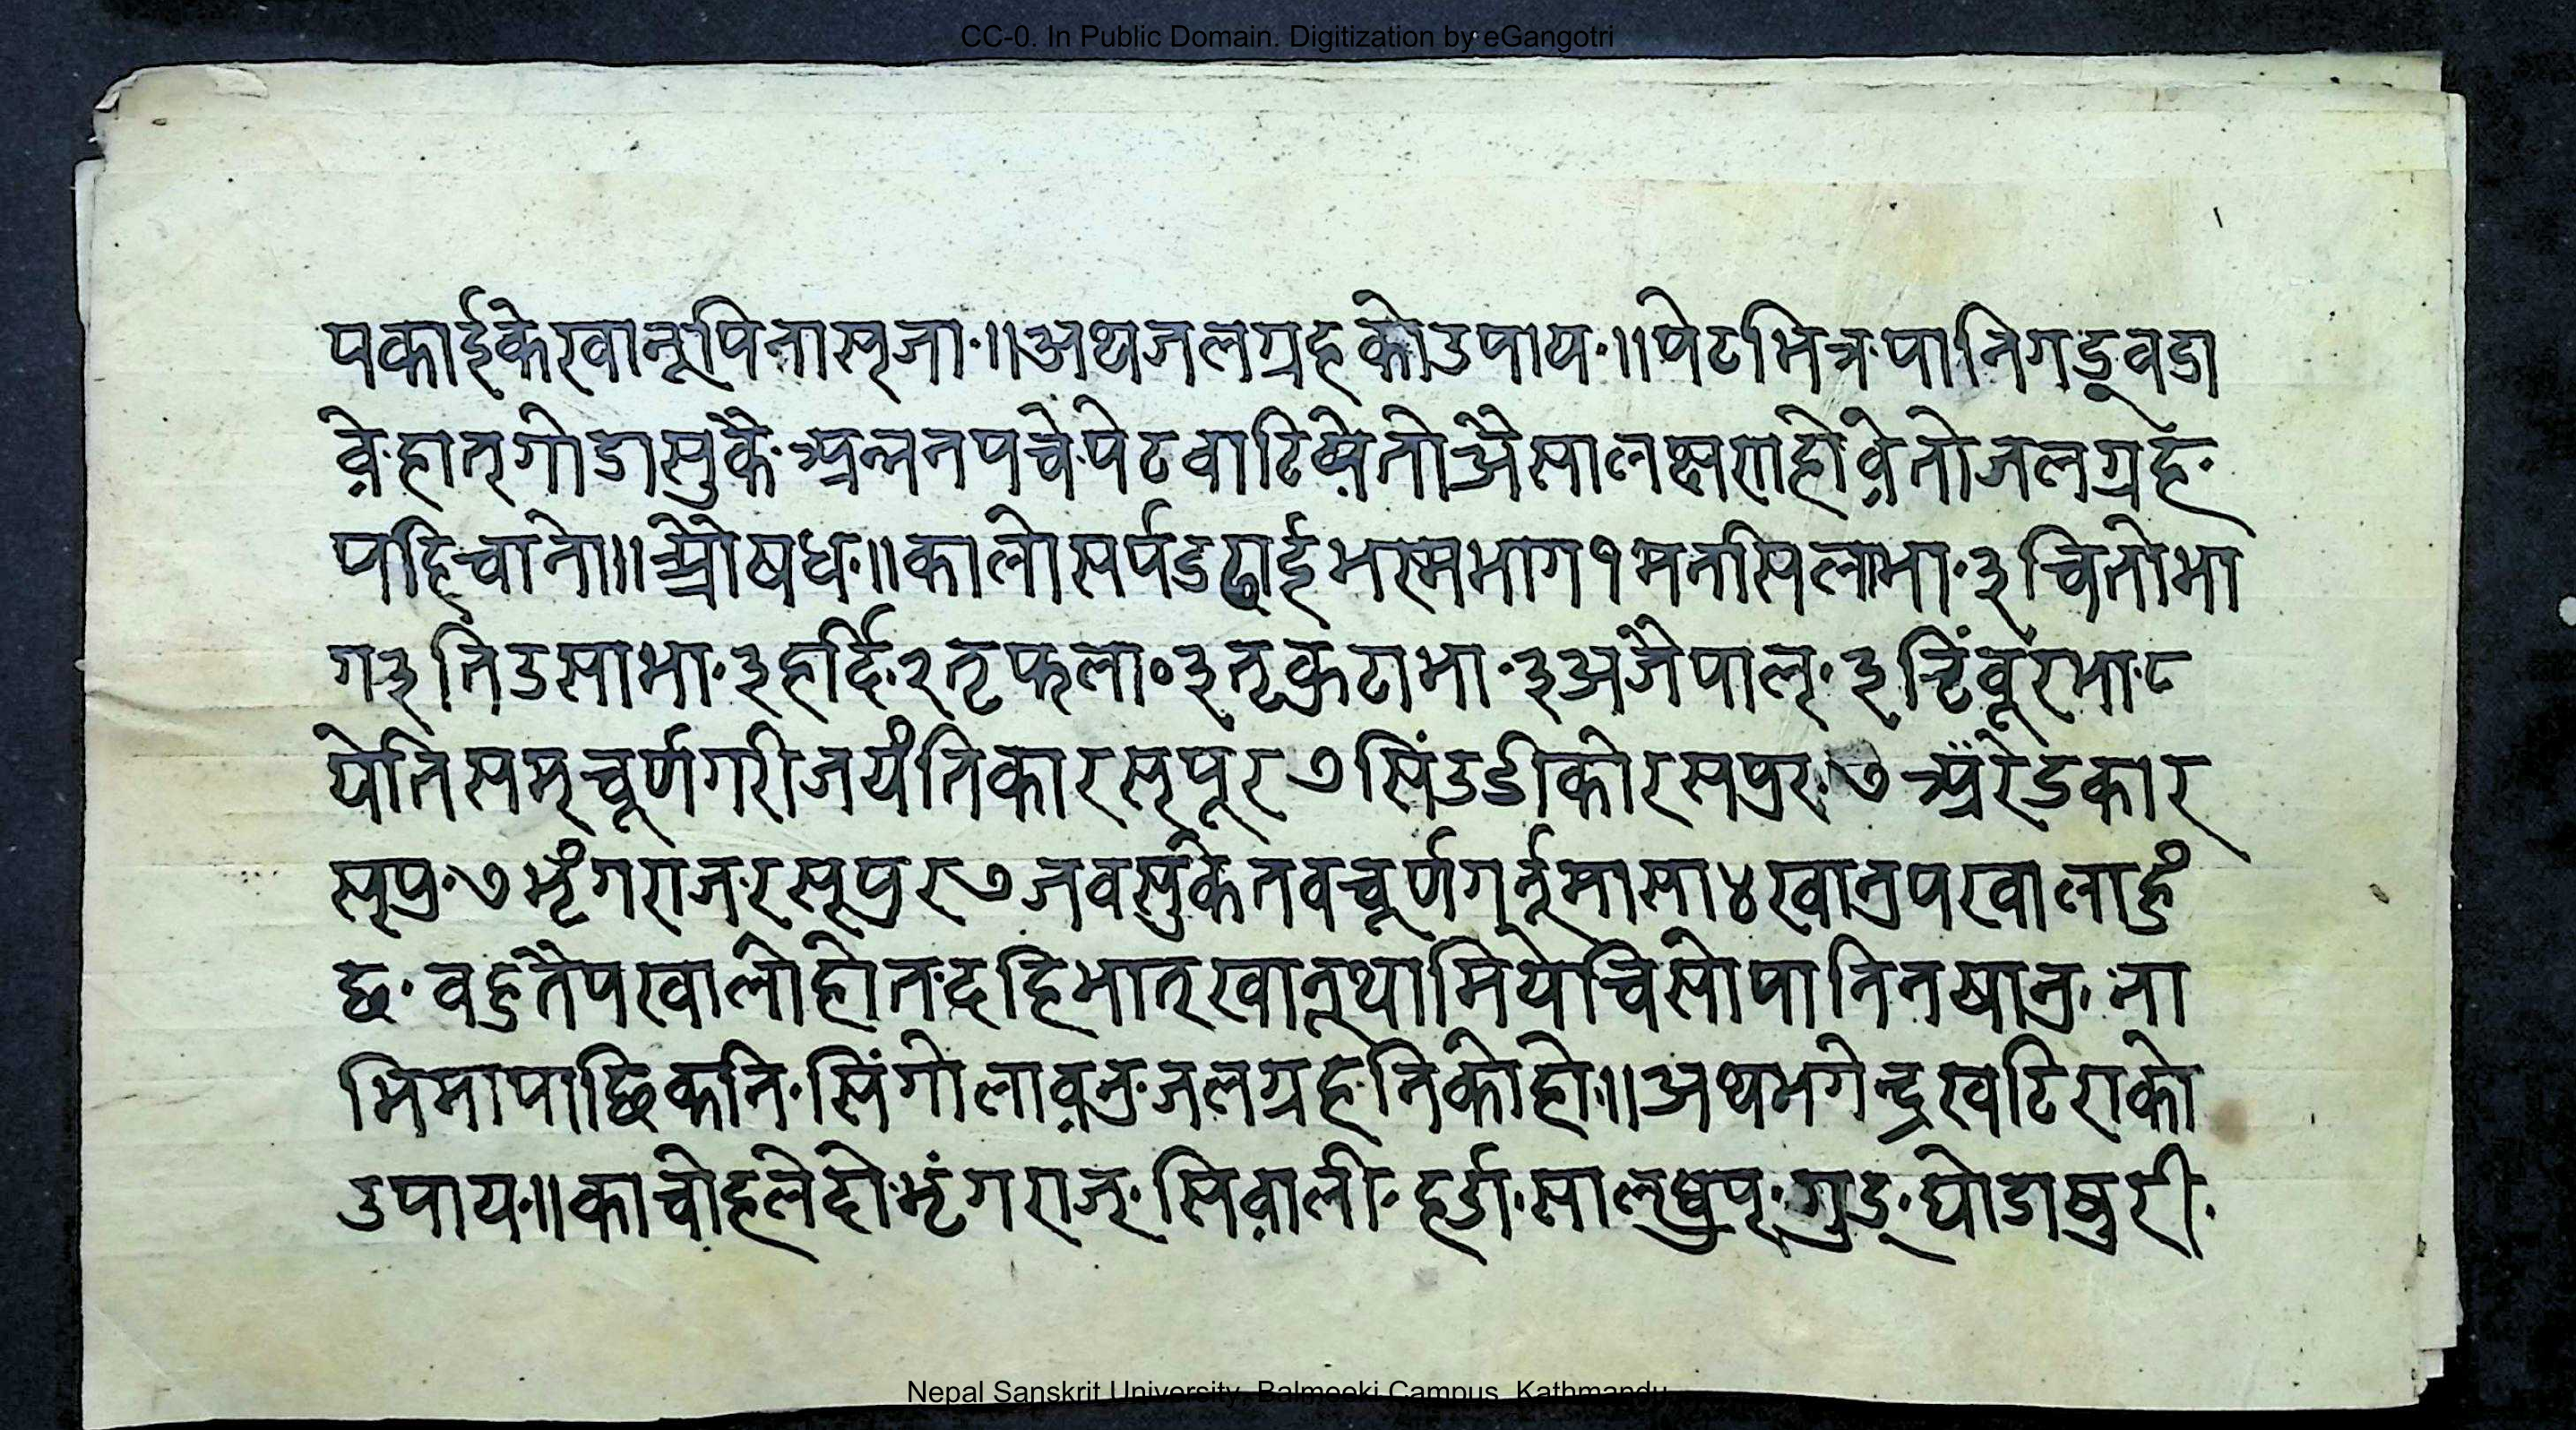 CC-0. In Public Domain. Digitization by eGangotri
पकाईकेखानूपिनासृजा·॥अथजलग्रहकोउपाय·॥पेटभित्रपानिगडू्वडा
वे़·हात्गोडासुकै·अन्ननपचे·पेटवाटिषे़तोअैसालक्षणहोवे़तोजलग्रह·
पहिचाने॥औषध·॥कालोसर्पडढाईभस्मभाग१मनसिलाभा·३चितोभा
ग३निउसाभा·३हर्दि·२तृफला०३तृकुटाभा·३अजैपाल्·३टिंवूरभा·८
येतिसम्चूर्णगरीजयंतिकारस्पूर७सिंउडीकोरसपुर·७अँरेडकार
स्पुर·७भृंगराज·रसूपुर७जवसुकेतवचूर्णगर्नूमासा४खानुपखालाहुं
छ·वहुतैपखालोहोत·दहिभात्खानूथामियेचिसोपानिनषानु·ना
भिमापाछिकनि·सिंगोलाव़नु·जलग्रह·निकोहो॥अथभगेन्द्रखटिराको
उपाय॥काचोहलेदो·भृंगराज्·सिव़ाली·हर्डा·साल्धुप्·गुड्·घोडाषुरी·
Nepal Sanskrit University, Balmeeki Campus, Kathmandu